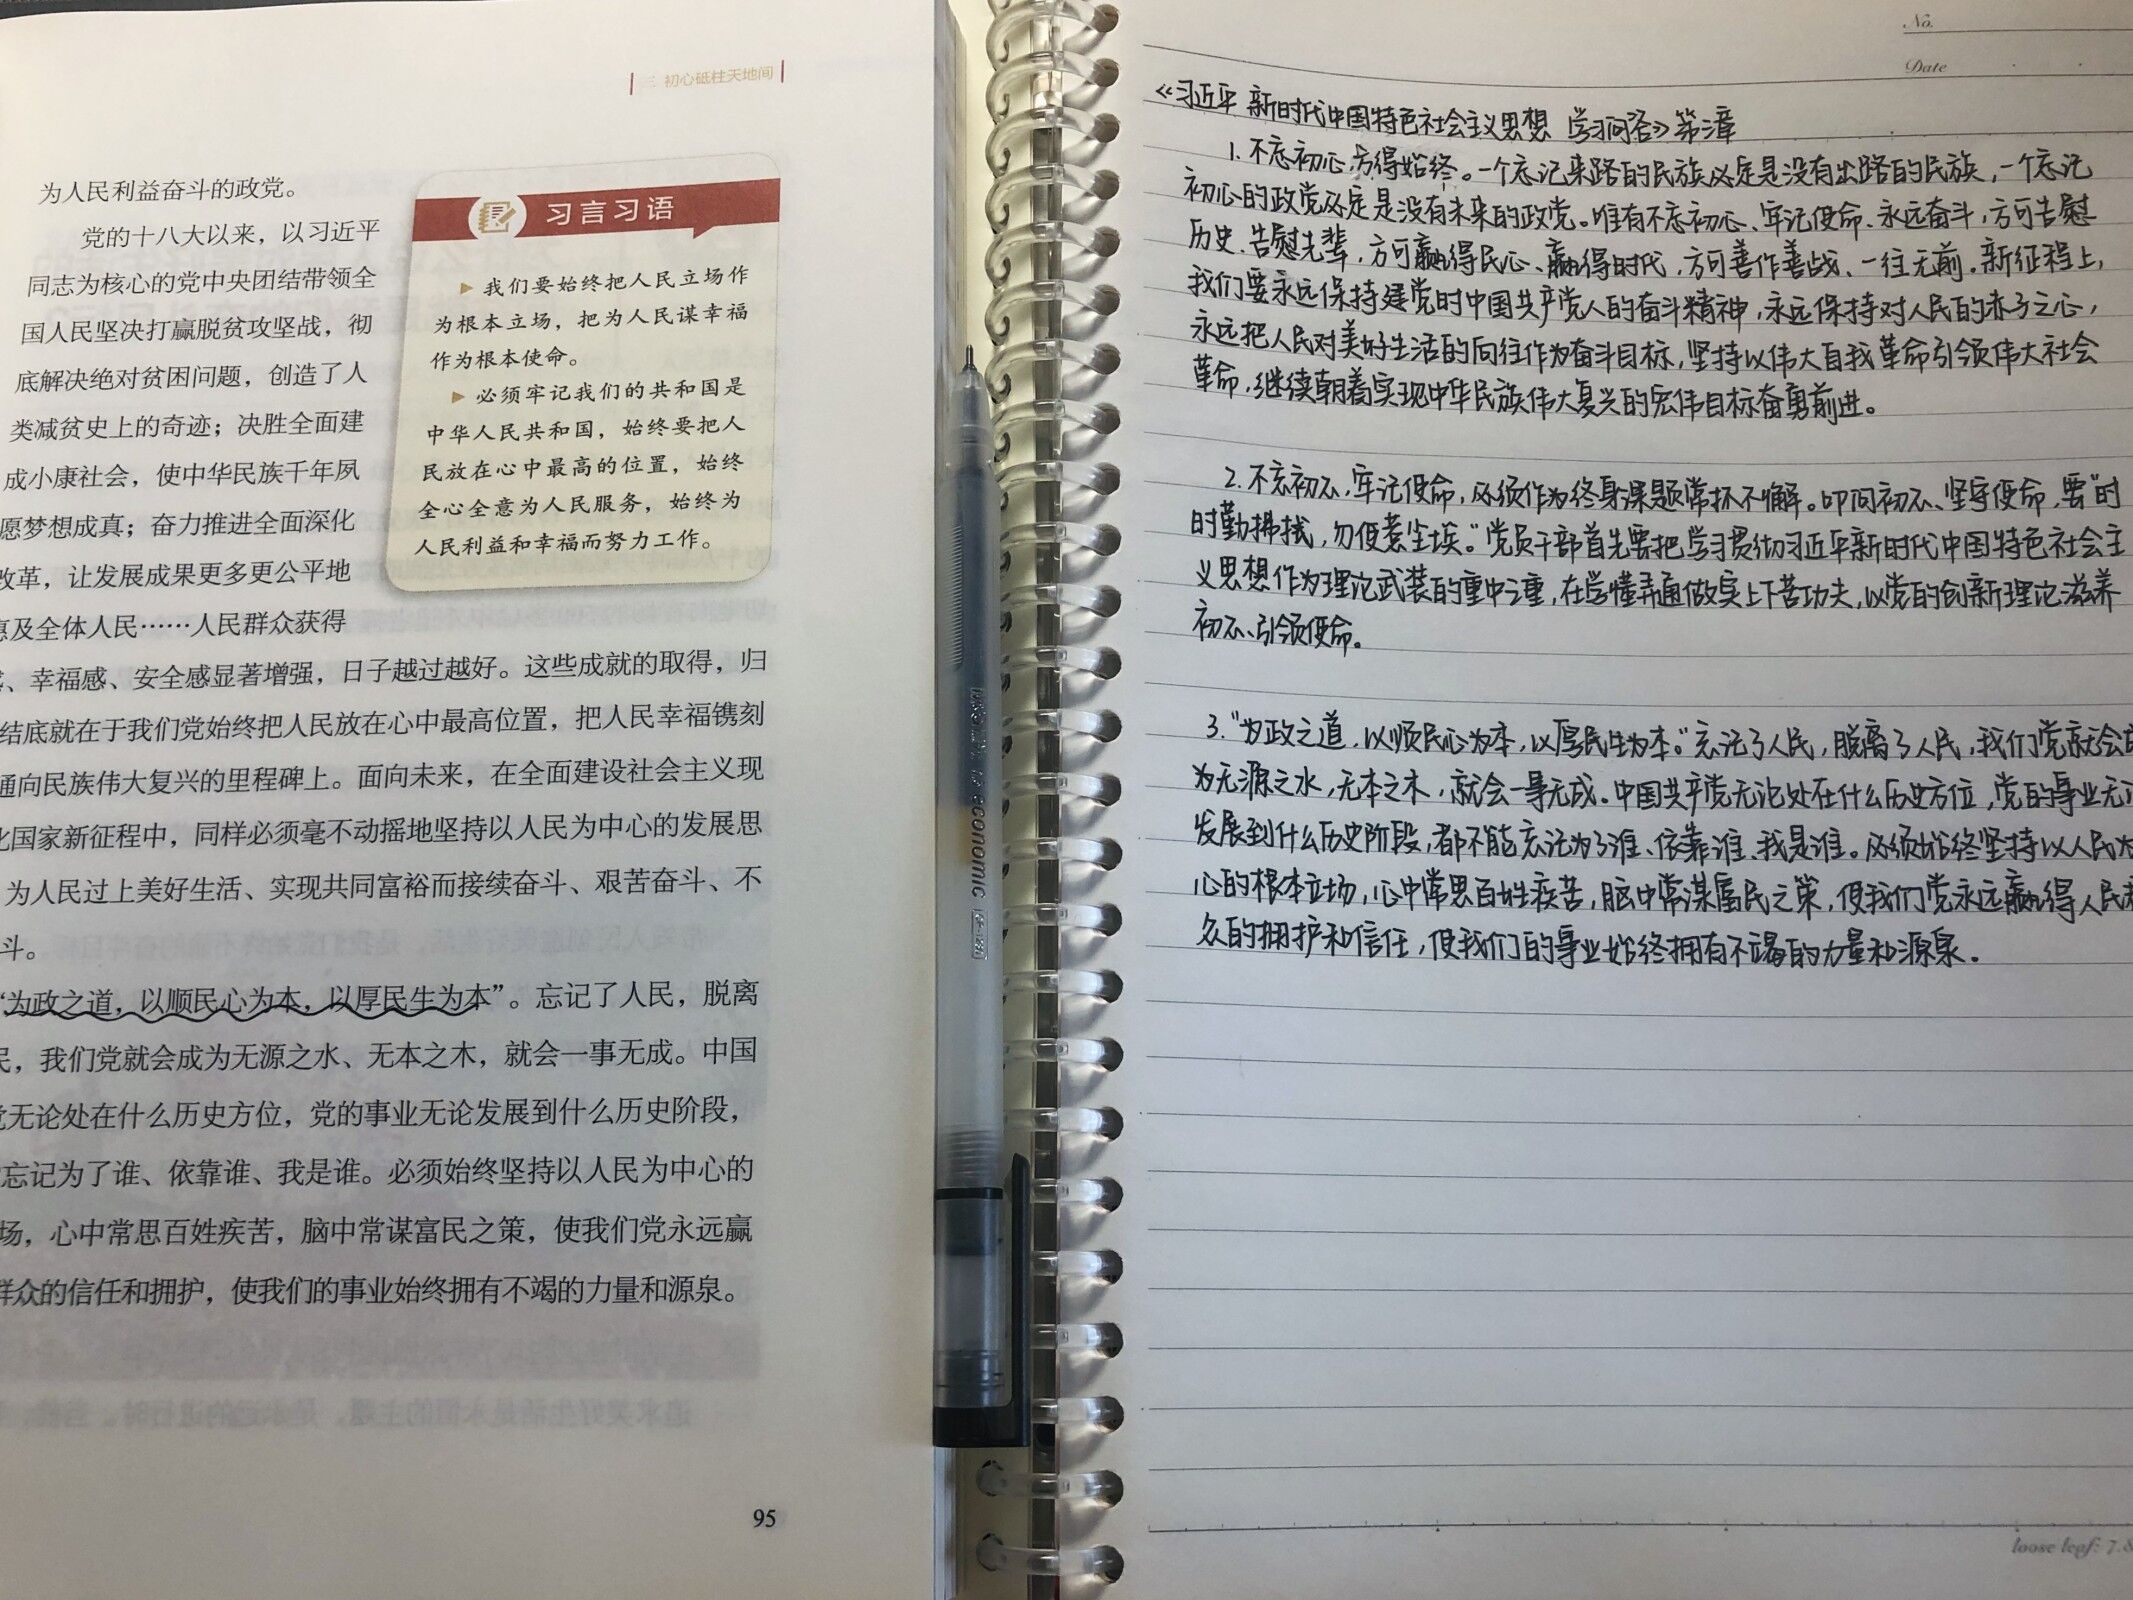 三 初心砥柱天地间
为人民利益奋斗的政党。
党的十八大以来，以习近平
同志为核心的党中央团结带领全
国人民坚决打赢脱贫攻坚战，彻
底解决绝对贫困问题，创造了人
类减贫史上的奇迹；决胜全面建
成小康社会，使中华民族千年夙
愿梦想成真；奋力推进全面深化
改革，让发展成果更多更公平地
惠及全体人民……人民群众获得
感、幸福感、安全感显著增强，日子越过越好。这些成就的取得，归
结底就在于我们党始终把人民放在心中最高位置，把人民幸福镌刻
通向民族伟大复兴的里程碑上。面向未来，在全面建设社会主义现
化国家新征程中，同样必须毫不动摇地坚持以人民为中心的发展思
，为人民过上美好生活、实现共同富裕而接续奋斗、艰苦奋斗、不
斗。
“为政之道，以顺民心为本，以厚民生为本”。忘记了人民，脱离
民，我们党就会成为无源之水、无本之木，就会一事无成。中国
党无论处在什么历史方位，党的事业无论发展到什么历史阶段，
忘记为了谁、依靠谁、我是谁。必须始终坚持以人民为中心的
场，心中常思百姓疾苦，脑中常谋富民之策，使我们党永远赢
群众的信任和拥护，使我们的事业始终拥有不竭的力量和源泉。
习言习语
我们要始终把人民立场作
为根本立场，把为人民谋幸福
作为根本使命。
必须牢记我们的共和国是
中华人民共和国，始终要把人
民放在心中最高的位置，始终
全心全意为人民服务，始终为
人民利益和幸福而努力工作。
95
economic
No.
Date
《习近平新时代中国特色社会主义思想 学习问答》第三章
1. 不忘初心，方得始终。一个忘记来路的民族必定是没有出路的民族，一个忘记
初心的政党必定是没有未来的政党。唯有不忘初心、牢记使命、永远奋斗，方可告慰
历史、告慰先辈，方可赢得民心、赢得时代，方可善作善战、一往无前。新征程上，
我们要永远保持建党时中国共产党人的奋斗精神，永远保持对人民的赤子之心，
永远把人民对美好生活的向往作为奋斗目标，坚持以伟大自我革命引领伟大社会
革命，继续朝着实现中华民族伟大复兴的宏伟目标奋勇前进。
2. 不忘初心、牢记使命，必须作为终身课题常抓不懈。叩问初心、坚守使命，要“时
时勤拂拭，勿使惹尘埃。”党员干部首先要把学习贯彻习近平新时代中国特色社会主
义思想作为理论武装的重中之重，在学懂弄通做实上下苦功夫，以党的创新理论滋养
初心、引领使命。
3.“为政之道，以顺民心为本，以厚民生为本。”忘记了人民，脱离了人民，我们党就会成
为无源之水，无本之木，就会一事无成。中国共产党无论处在什么历史方位，党的事业无论
发展到什么历史阶段，都不能忘记为了谁、依靠谁、我是谁。必须始终坚持以人民为
心的根本立场，心中常思百姓疾苦，脑中常谋富民之策，使我们党永远赢得人民群
众的拥护和信任，使我们的事业始终拥有不竭的力量和源泉。
loose leaf: 7.8